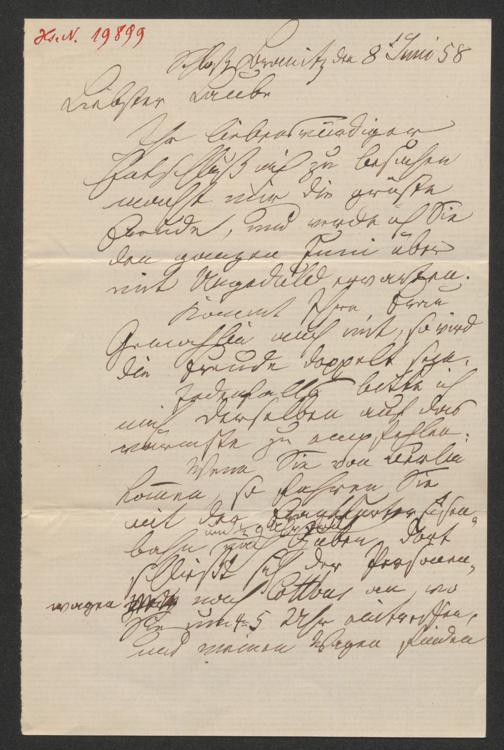 H.I.N. 19899
Schloß Branitz den 8t Juni 58
Liebster Laube
Ihr liebenswürdiger
Entschluß mich zu besuchen
macht mir die größte
Freude, und werde ich Sie
den ganzen Juni über
mit Ungeduld erwarten.
Kommt Ihre Frau
Gemahlin auch mit, so wird
die Freude doppelt sein.
Jedenfalls bitte ich
mich derselben auf das
wärmste zu empfehlen.
Wenn Sie von Berlin
kommen so fahren Sie
mit der Frankfurter Eisen
bahn nach Guben, dort
schließt sich der Personen
wagen nach Cottbus an, wo
Sie um 4-5 Uhr eintreffen,
und meinen Wagen finden